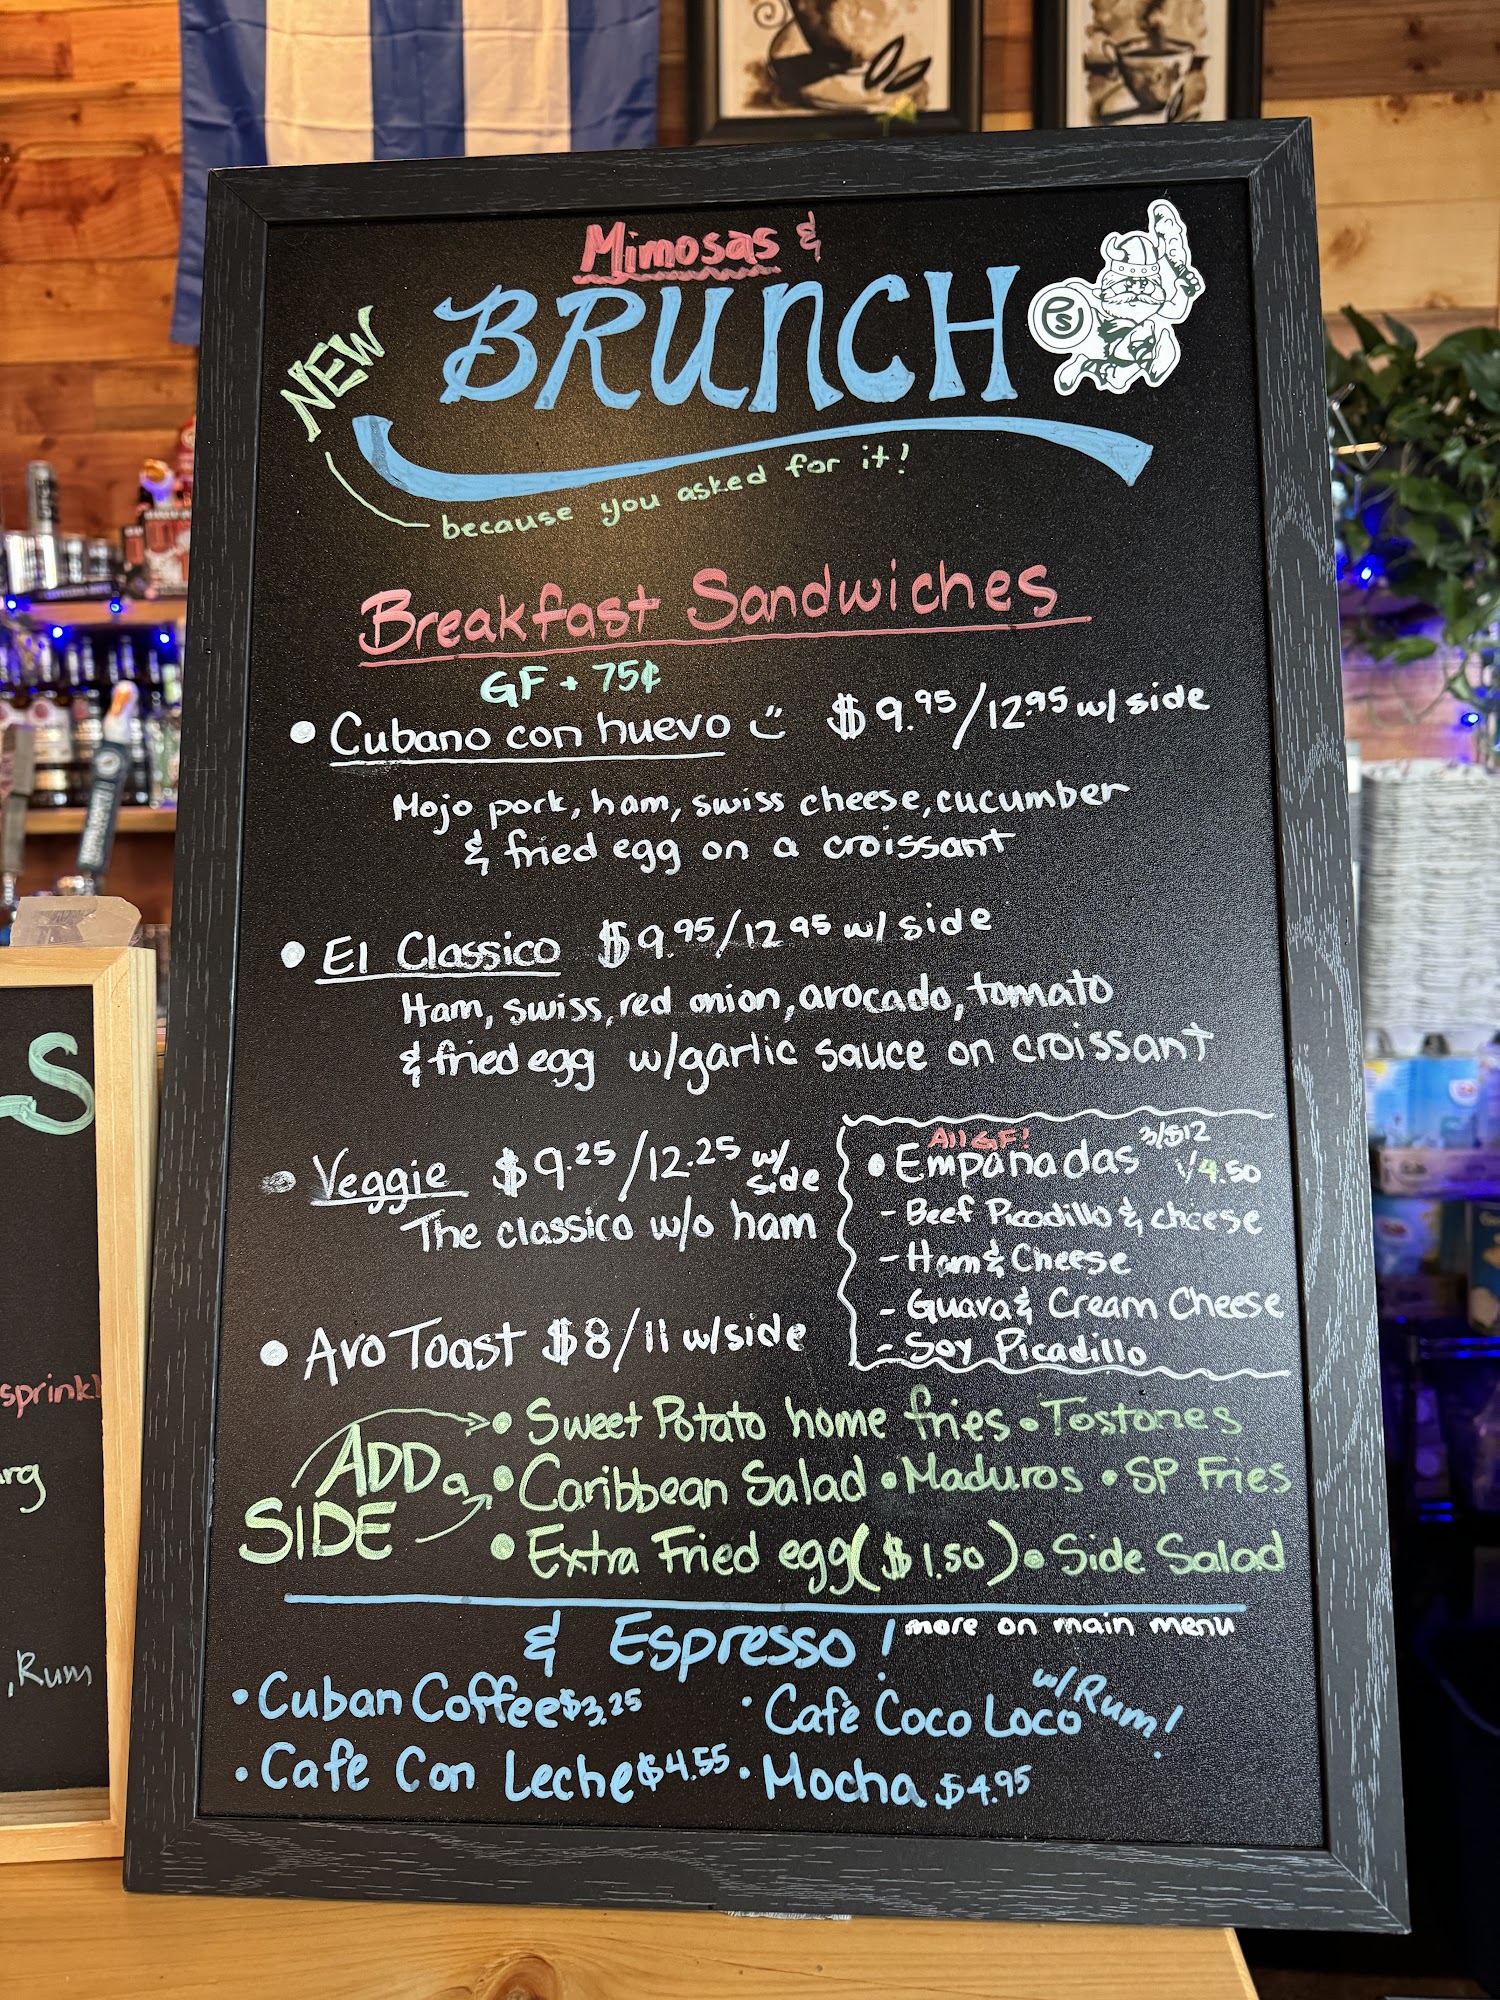 Mimosas &
BRUNCH
NEW
because you asked for it!
Breakfast Sandwiches
GF + 75¢
• Cubano con huevo $9.95/12.95 w/ side
Mojo pork, ham, swiss cheese, cucumber
& fried egg on a croissant
• El Classico $9.95/12.95 w/ side
Ham, swiss, red onion, avocado, tomato
& fried egg w/garlic sauce on croissant
• Veggie $9.25/12.25 w/ side
The classico w/o ham
All GF!
• Empanadas 3/$12
1/4.50
- Beef Picadillo & cheese
- Ham & Cheese
- Guava & Cream Cheese
- Soy Picadillo
• Avo Toast $8/11 w/side
ADD a
SIDE
• Sweet Potato home fries • Tostones
• Caribbean Salad • Maduros • SP Fries
• Extra Fried egg ($1.50) • Side Salad
& Espresso! more on main menu
• Cuban Coffee $3.25
• Café Coco Loco w/Rum!
• Cafe Con Leche $4.55
• Mocha $4.95
S
sprinkl
rg
, Rum